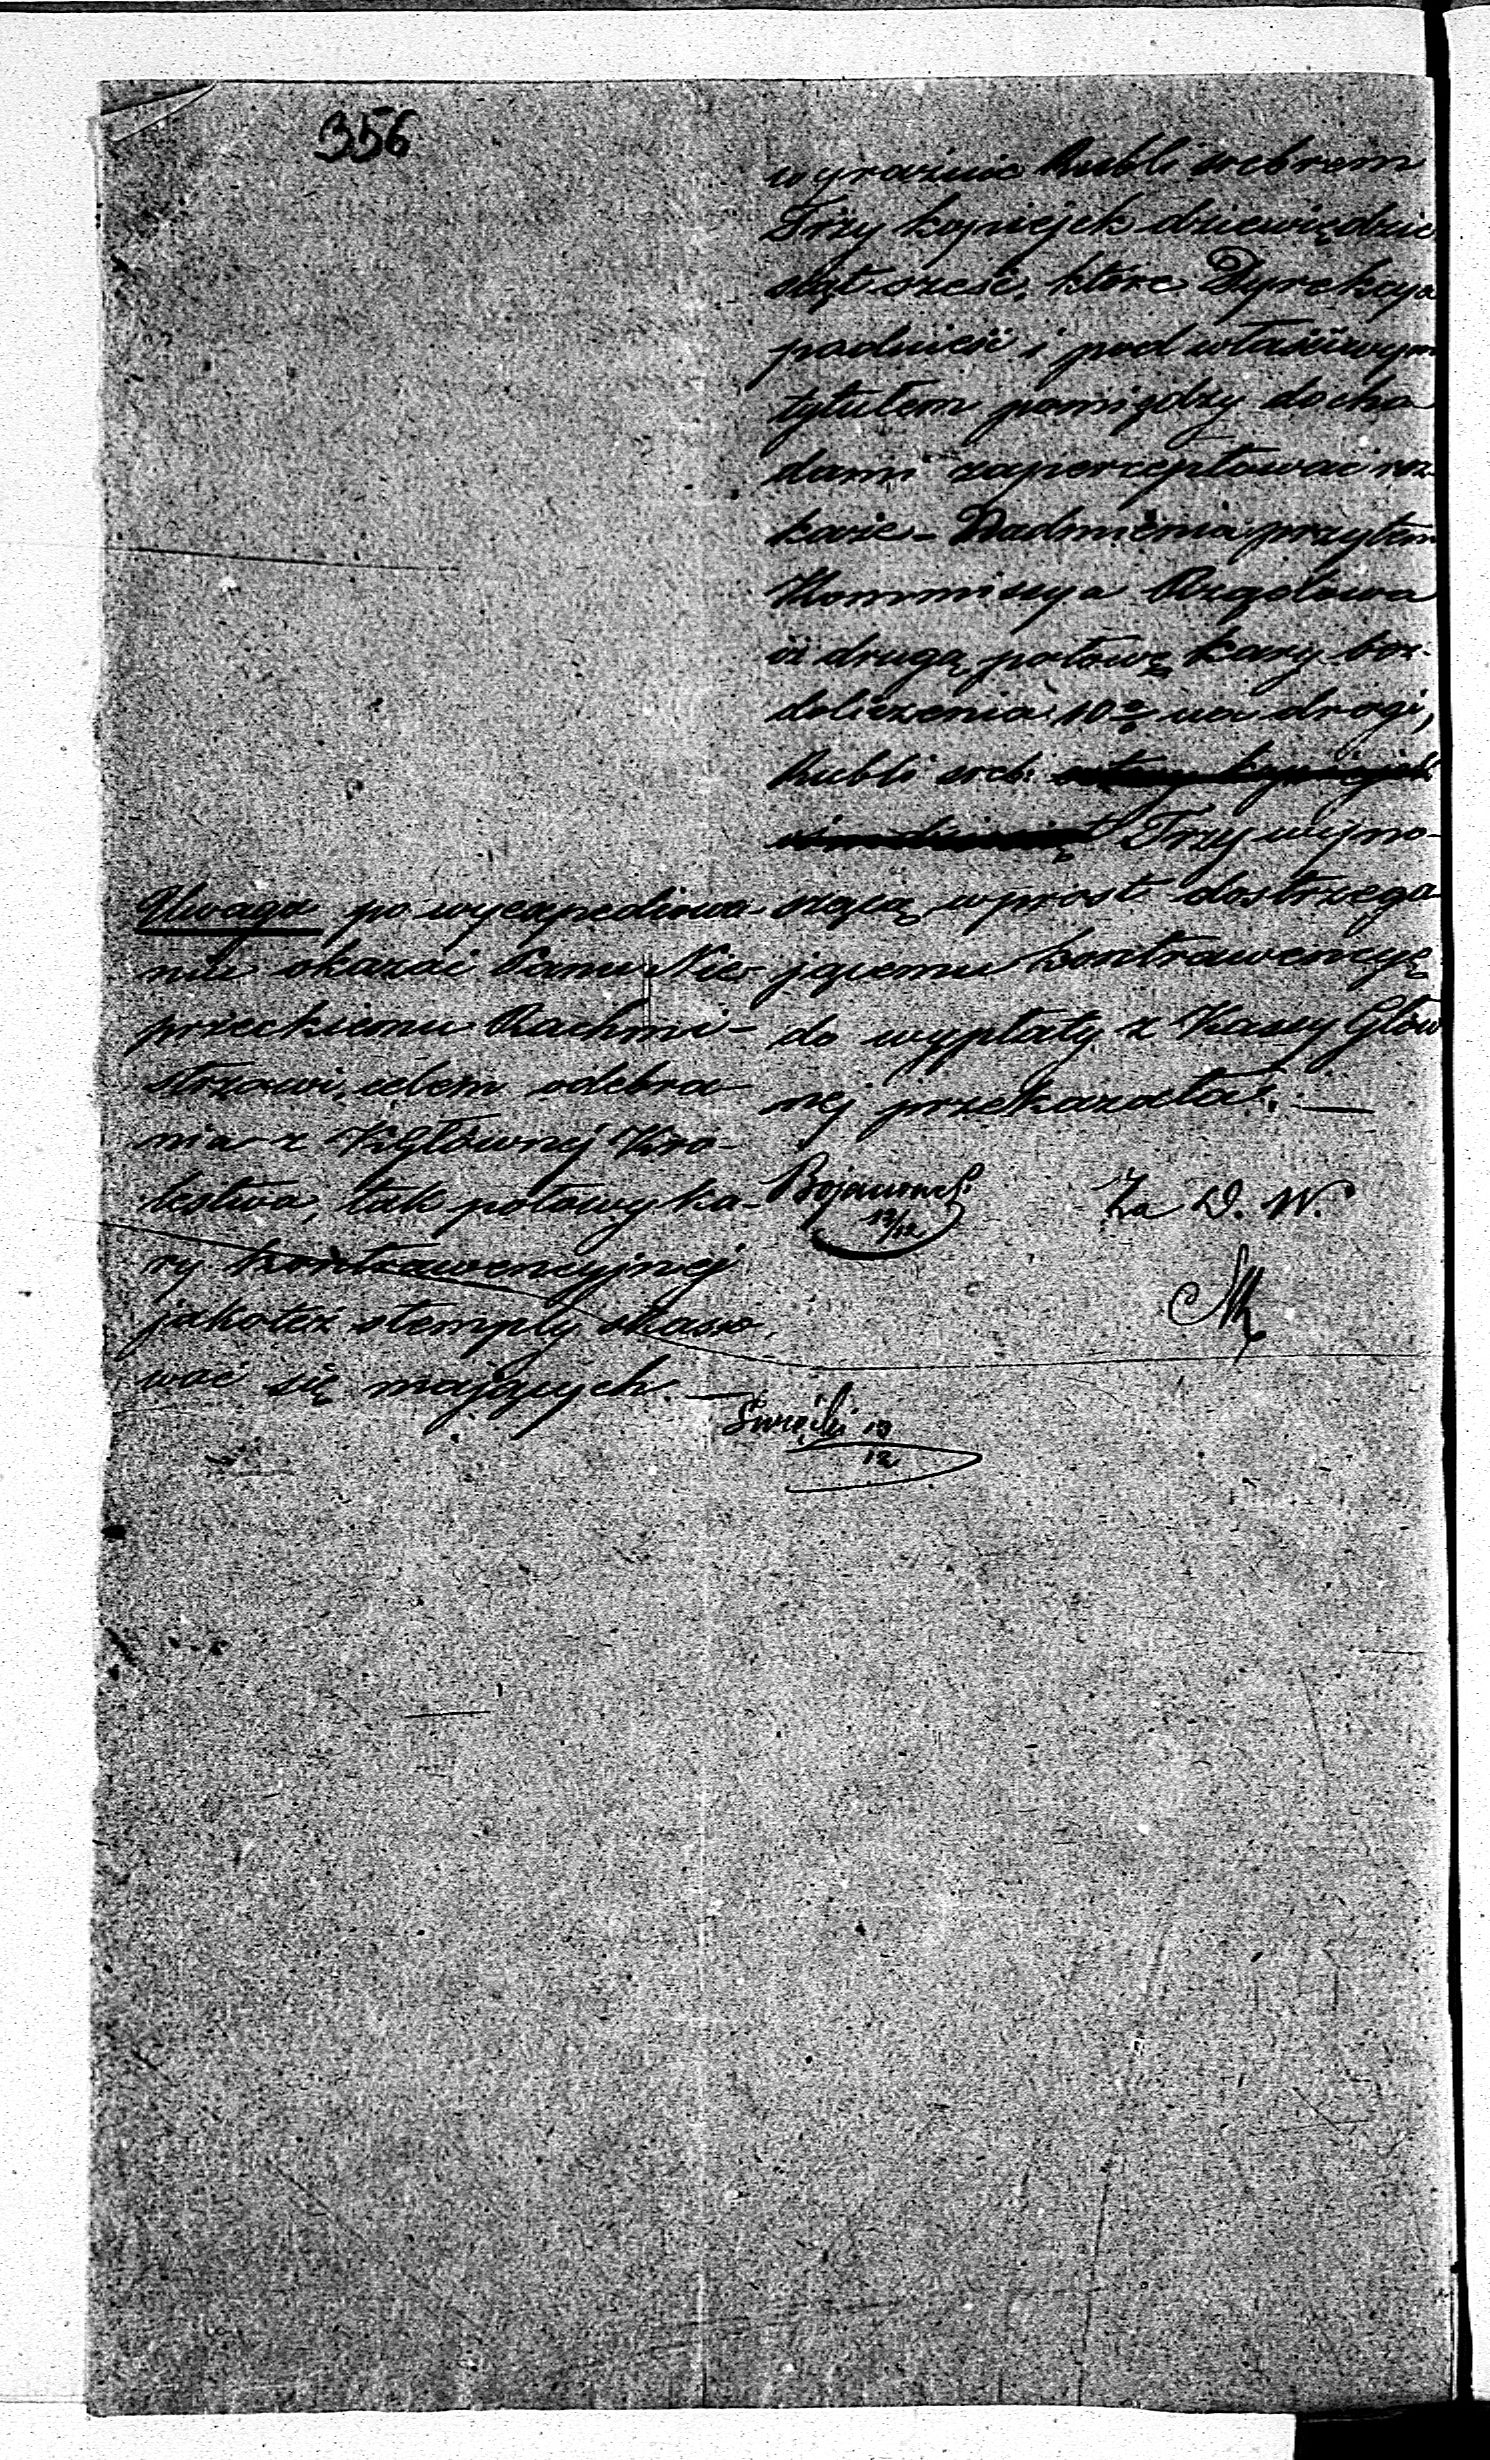 356
wyraźnie Rubli srebrem
Trzy kopiejek dziewiędzie
siąt sześć, które Dyrekcya
podnieść i pod właściwym
tytułem pomiędzy docho
dami zaperceptować roz-
każe – Nadmienia przytem
Kommissya Rządowa
iż drugą połowę kary bez
doliczenia 10% na drogi,
Rubli sreb:
Trzy wyno-
szącą wprost dostrzega-
jącemu kontrawencyę
do wypłaty z Kassy Głów
nej przekazała. —
Za D. W.
Uwaga po wyexpediowa-
niu okazać Panu Nie-
przeckiemu Rachmi-
strzowi, celem odebra
nia z K Głównej Kró-
lestwa, tak połowy ka-
ry kontrawencyjnej
jakoteż stemply skaso-
wać się mających. —
12/12
10/12